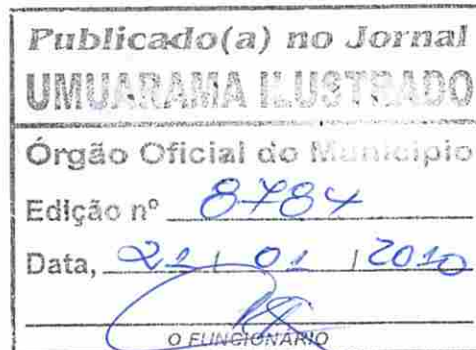 Publicado(a) no Jornal
UMUARAMA ILUSTRADO
Órgão Oficial do Município
Edição nº 8784
Data, 21 / 01 / 2010
O FUNCIONÁRIO